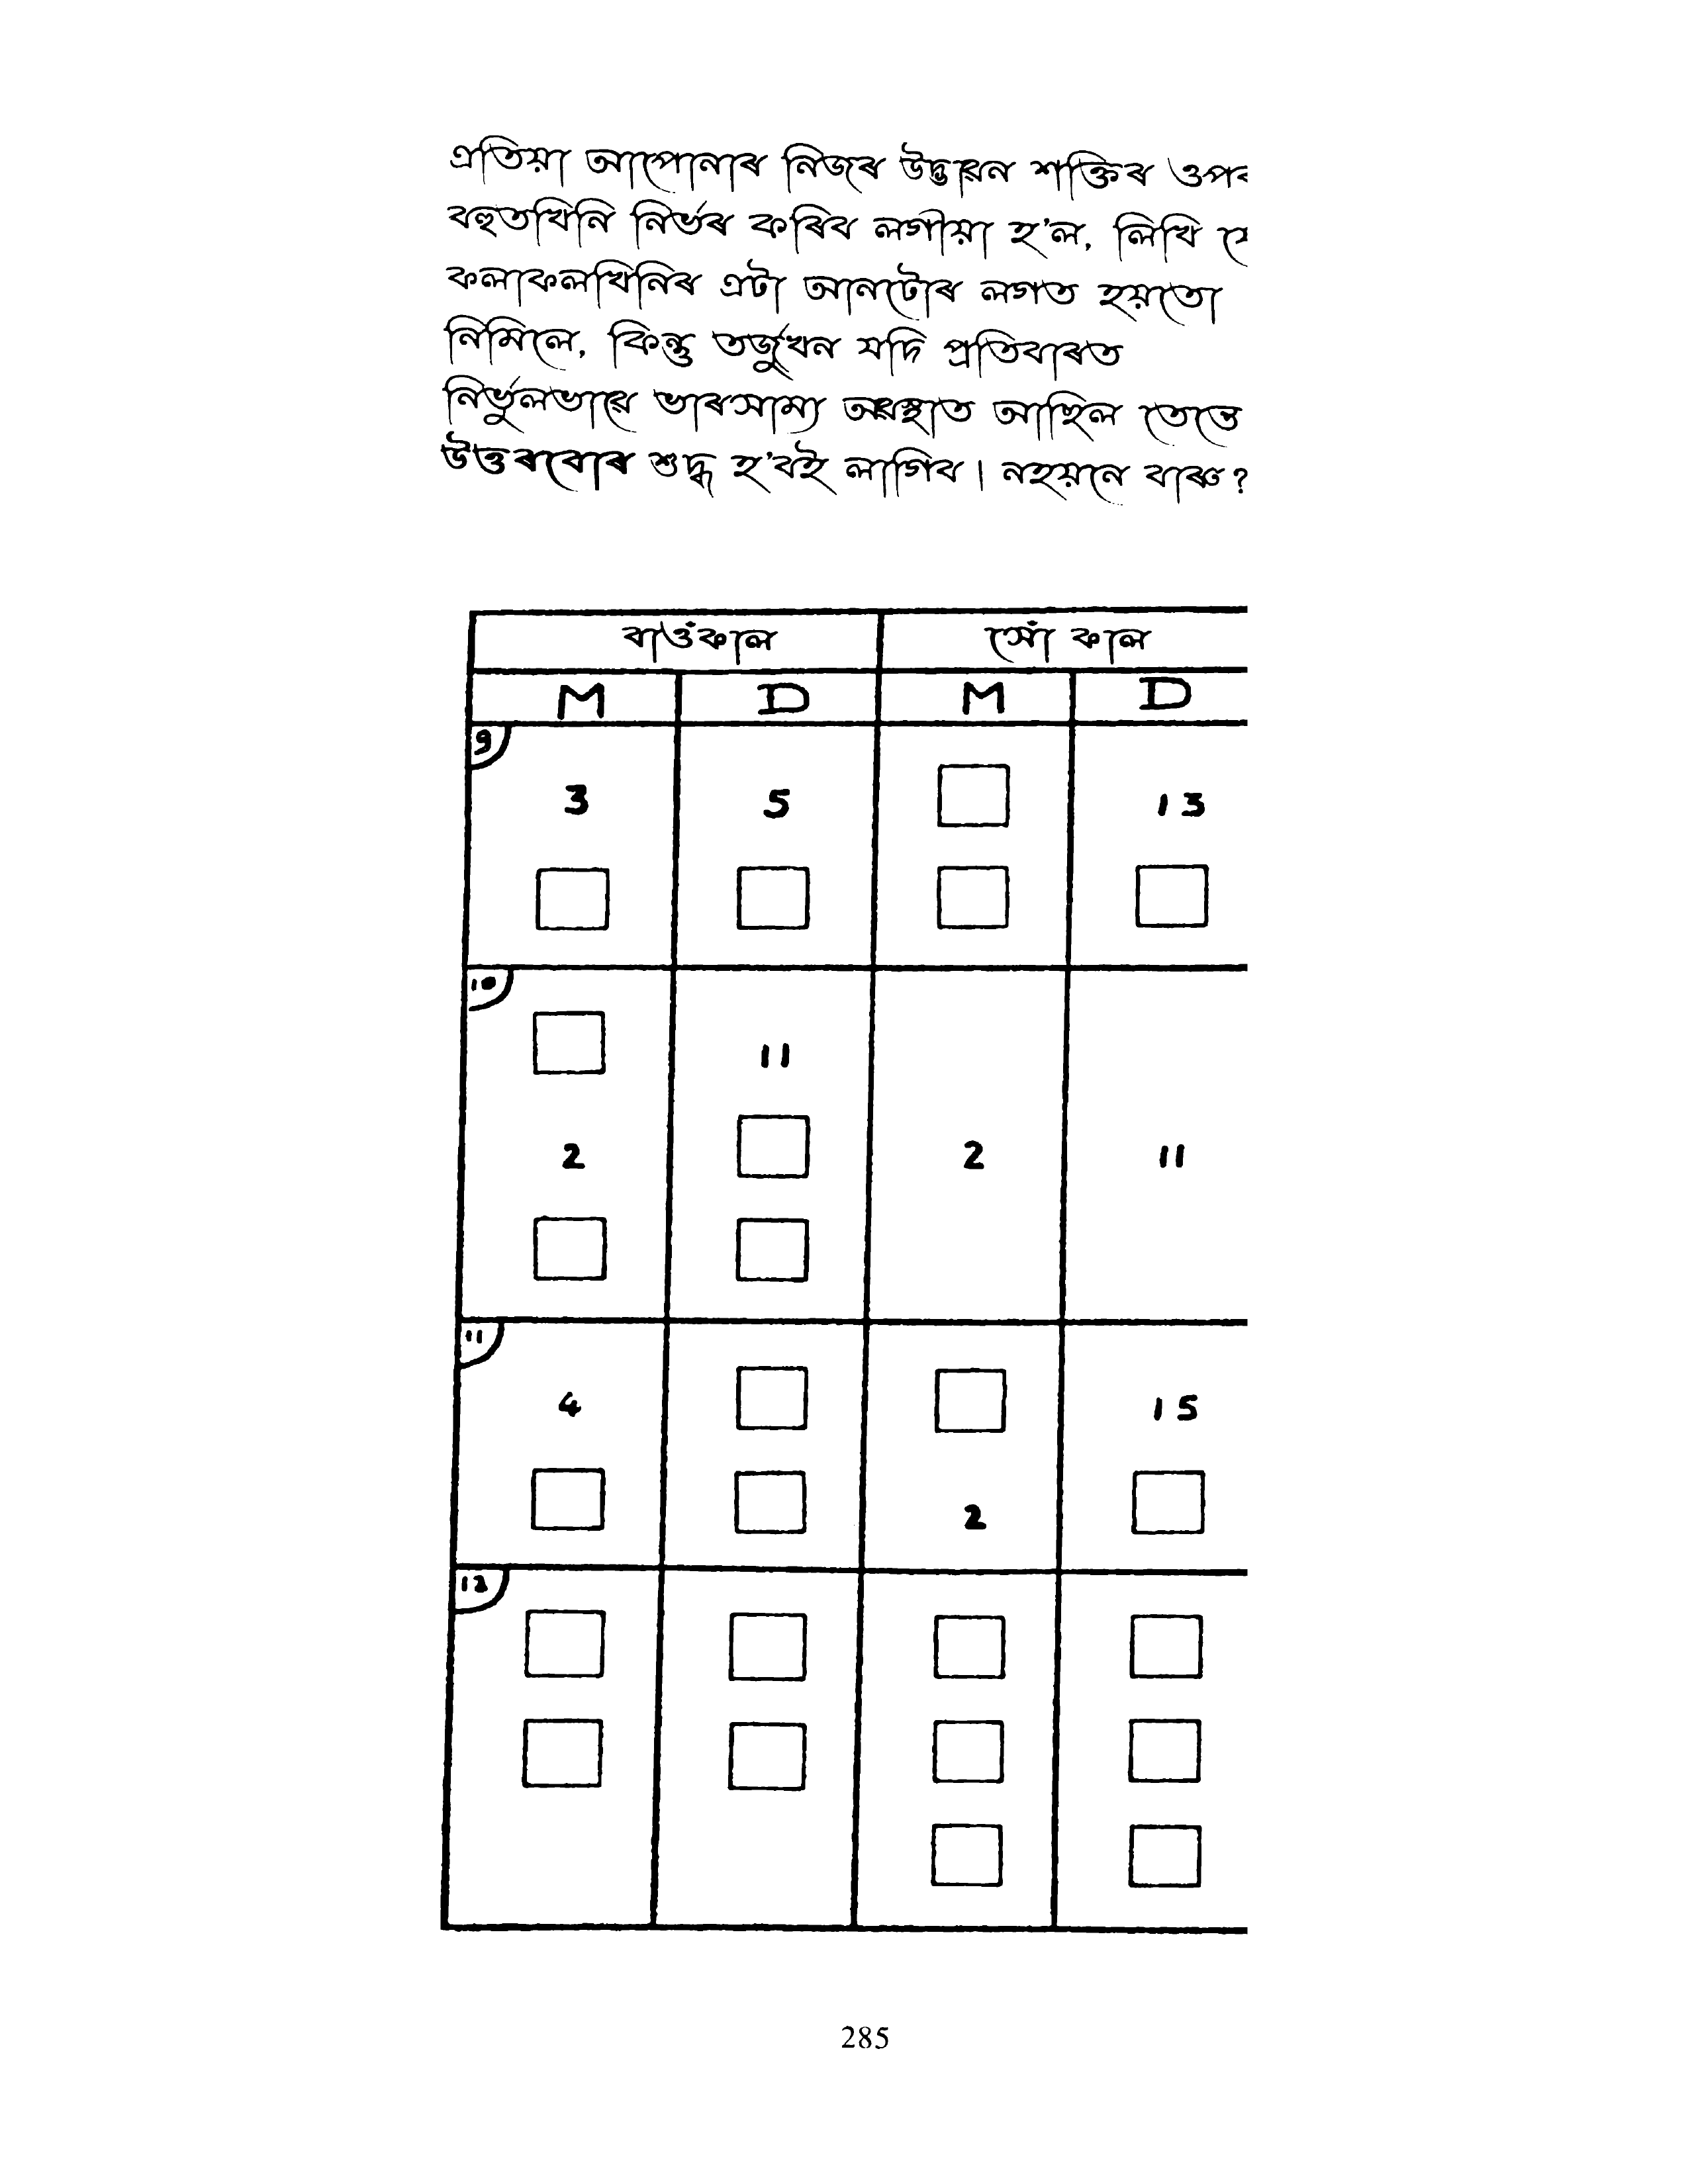 এতিয়া আপোনাৰ নিজৰ উদ্ভাৱন শক্তিৰ
বহুতখিনি নিৰ্ভৰ কৰিব লগীয়া হ'ল, লিখি
কলাকলখিনিৰ এটা আনটোৰ লগত হয়তো
নিমিলে, কিন্তু তৰ্জুখন যদি প্ৰতিবাৰত
নিৰ্ভুলভাৱে ভাৰসাম্য অৱস্থাত আছিল তেন্তে
উত্তৰবোৰ শুদ্ধ হ'বই লাগিব। নহয়নে বাৰু?
বাওঁকাল সোঁ কাল
M D M D
9
3 5 13
10
11
2 2 11
11
4 15
2
12
285